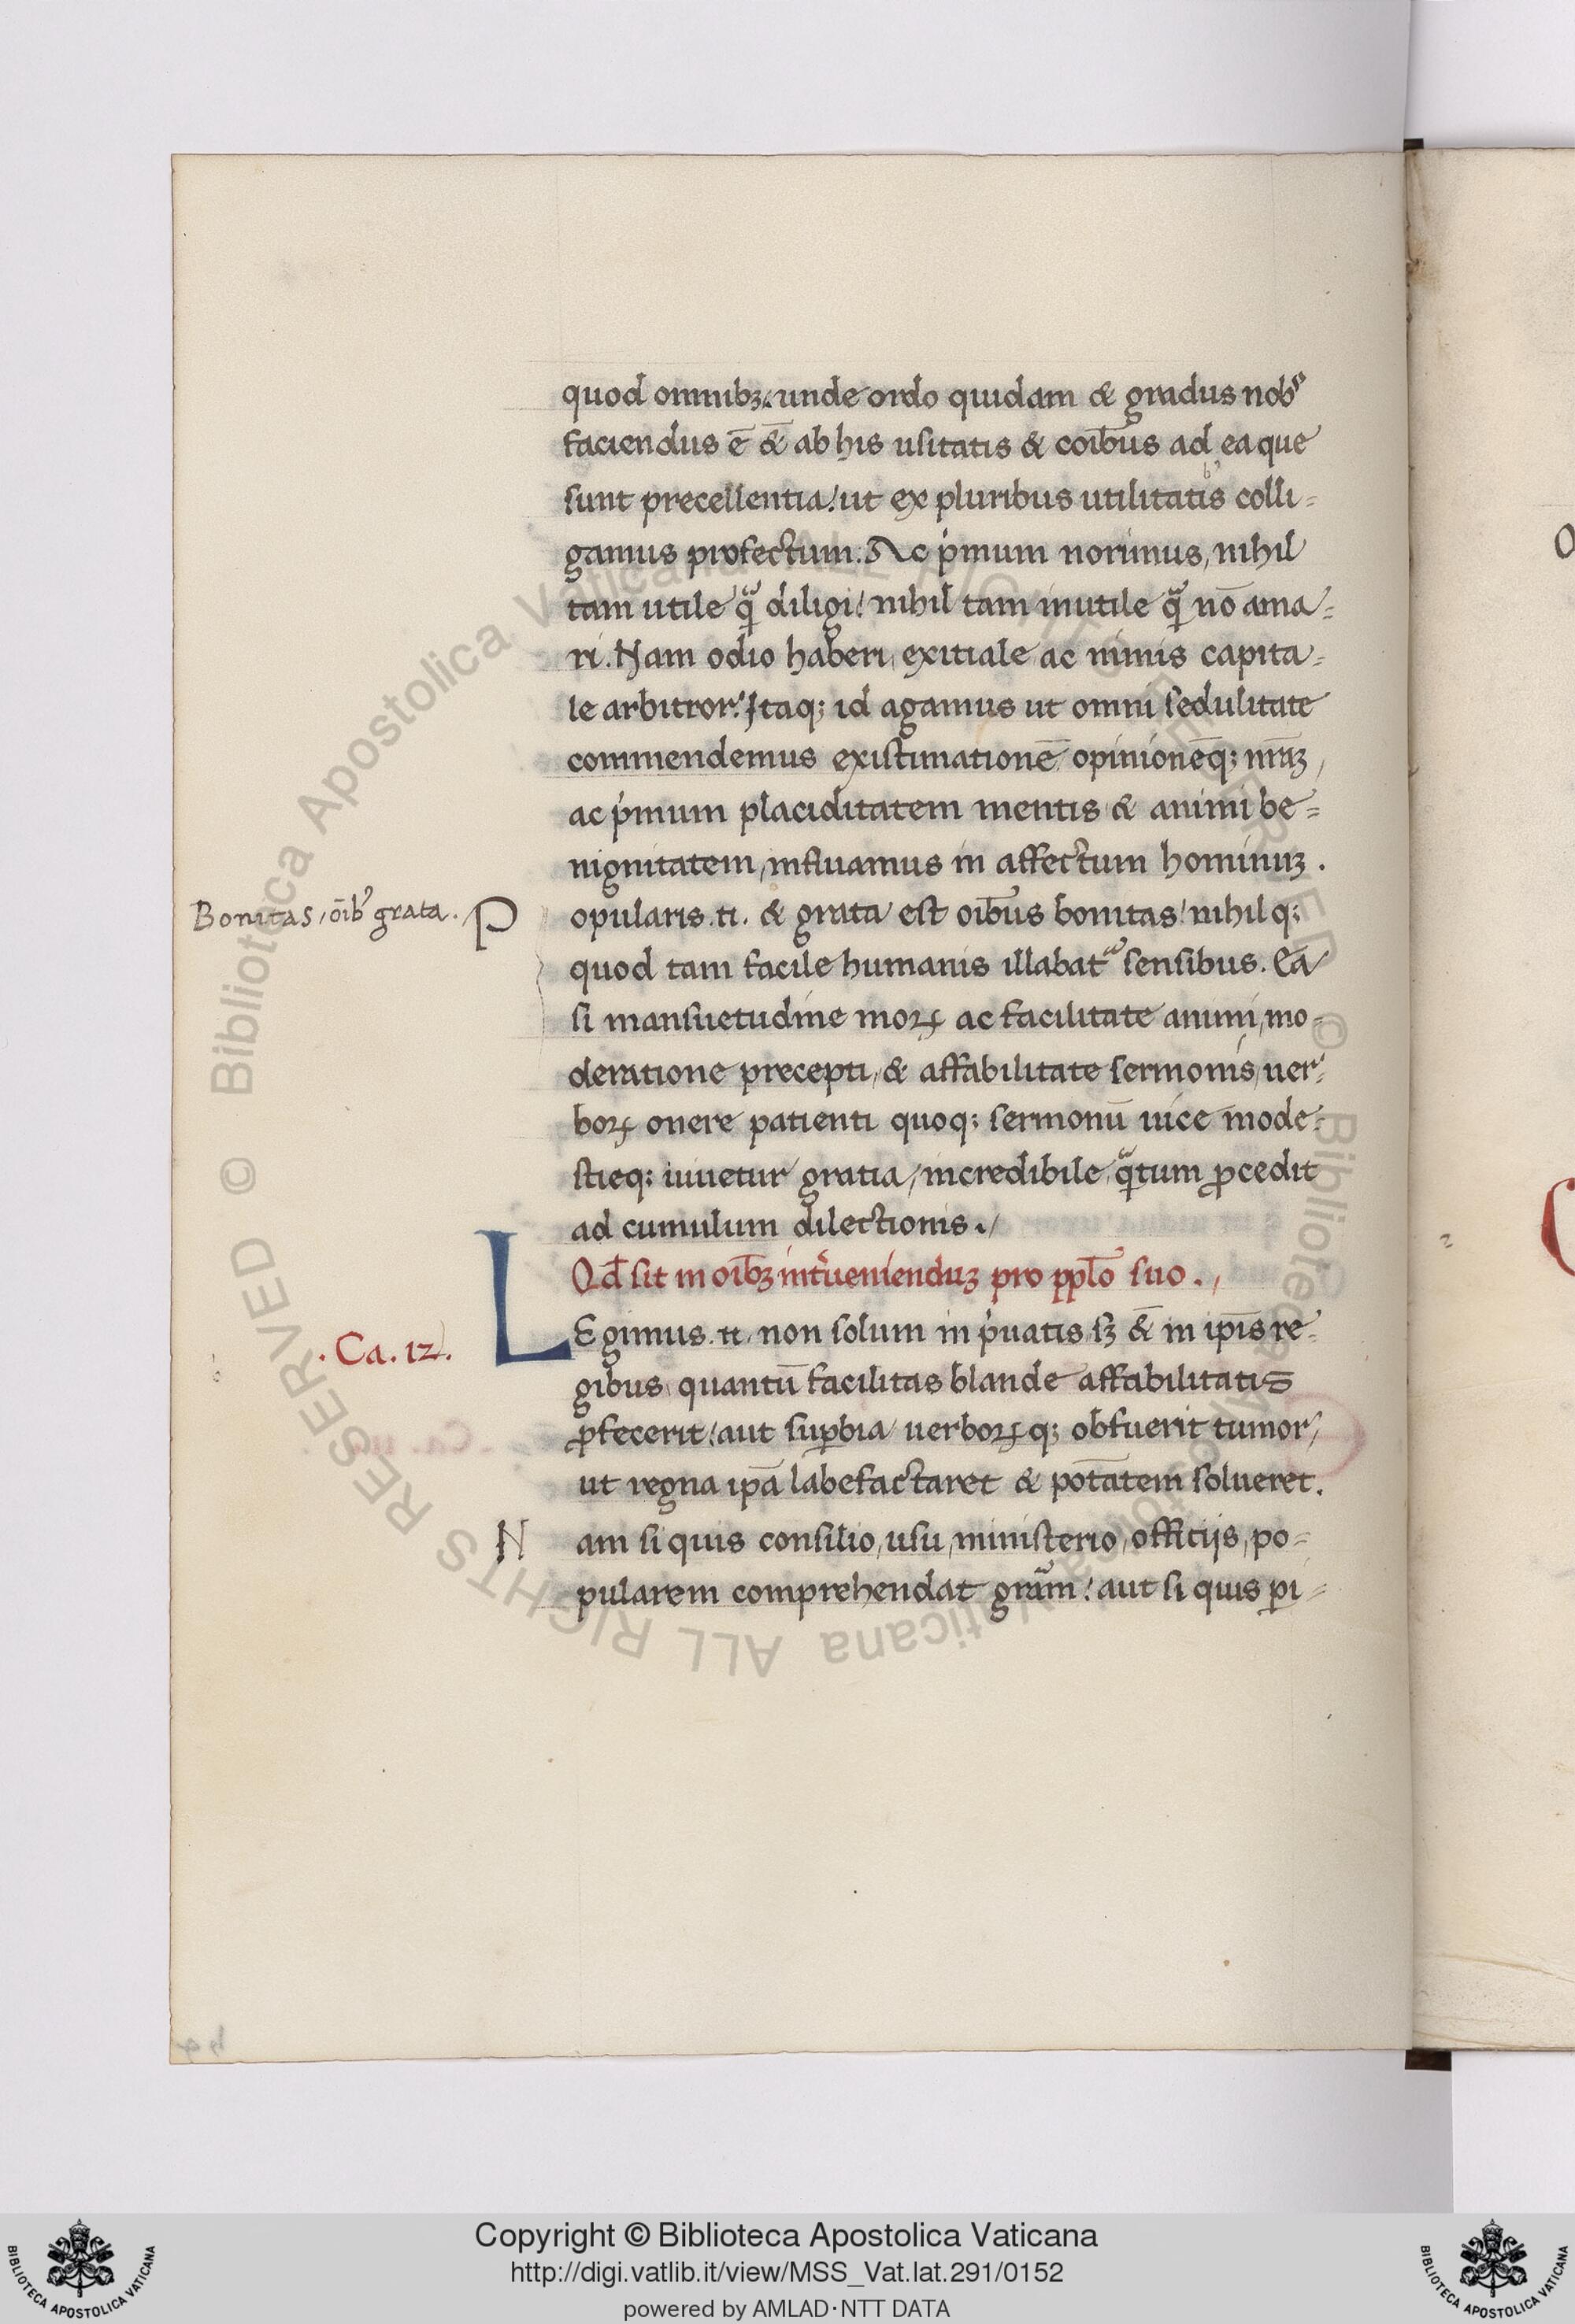 quod omnibꝫ. unde ordo quidam & gradus nobꝭ
faciendus ē & ab his usitatis & coībus ad ea que
sunt precellentia! ut ex pluribus utilitatis colli=
gamus profectum. Ac pͥmum norimus, nihil
tam utile qͣ̄ diligi! nihil tam inutile qͣ̄ nō ama=
ri. Nam odio haberi, exitiale ac nimis capita=
le arbitror. Itaq; id agamus ut omni sedulitate
commendemus existimationē opinionēq; nr̄aꝫ,
ac pͥmum placiditatem mentis & animi be=
nignitatem, influamus in affectum hominuꝫ.
Bonitas, oīb' grata.
Popularis .n. & grata est oībus bonitas! nihilq;
quod tam facile humanis illabat᷑ sensibus. Ea
si mansuetudine moꝝ ac facilitate animi, mo=
deratione precepti, & affabilitate sermonis, uer=
boꝝ onere patienti quoq; sermonū uice mode=
stieq; iuuetur gratia, incredibile qͣ̄tum ꝓcedit
ad cumulum dilectionis.
Qd̄ sit in oībꝫ int̓uenienduꝫ pro pplō suo.
.Ca.12.
LEgimus .n. non solum in pͥuatis, sꝫ & in ip̄is re=
gibus, quantū facilitas blande affabilitatis
ꝓfecerit! aut suꝑbia uerboꝝq; obfuerit tumor,
ut regna ip̄a labefactaret & potātem solueret.
Nam si quis consilio, usu, ministerio, officijs, po=
pularem comprehendat grām! aut si quis ꝑi=
Copyright © Biblioteca Apostolica Vaticana
http://digi.vatlib.it/view/MSS_Vat.lat.291/0152
powered by AMLAD·NTT DATA
BIBLIOTECA APOSTOLICA VATICANA
BIBLIOTECA APOSTOLICA VATICANA
© Biblioteca Apostolica Vaticana ALL RIGHTS RESERVED © Biblioteca Apostolica Vaticana ALL RIGHTS RESERVED